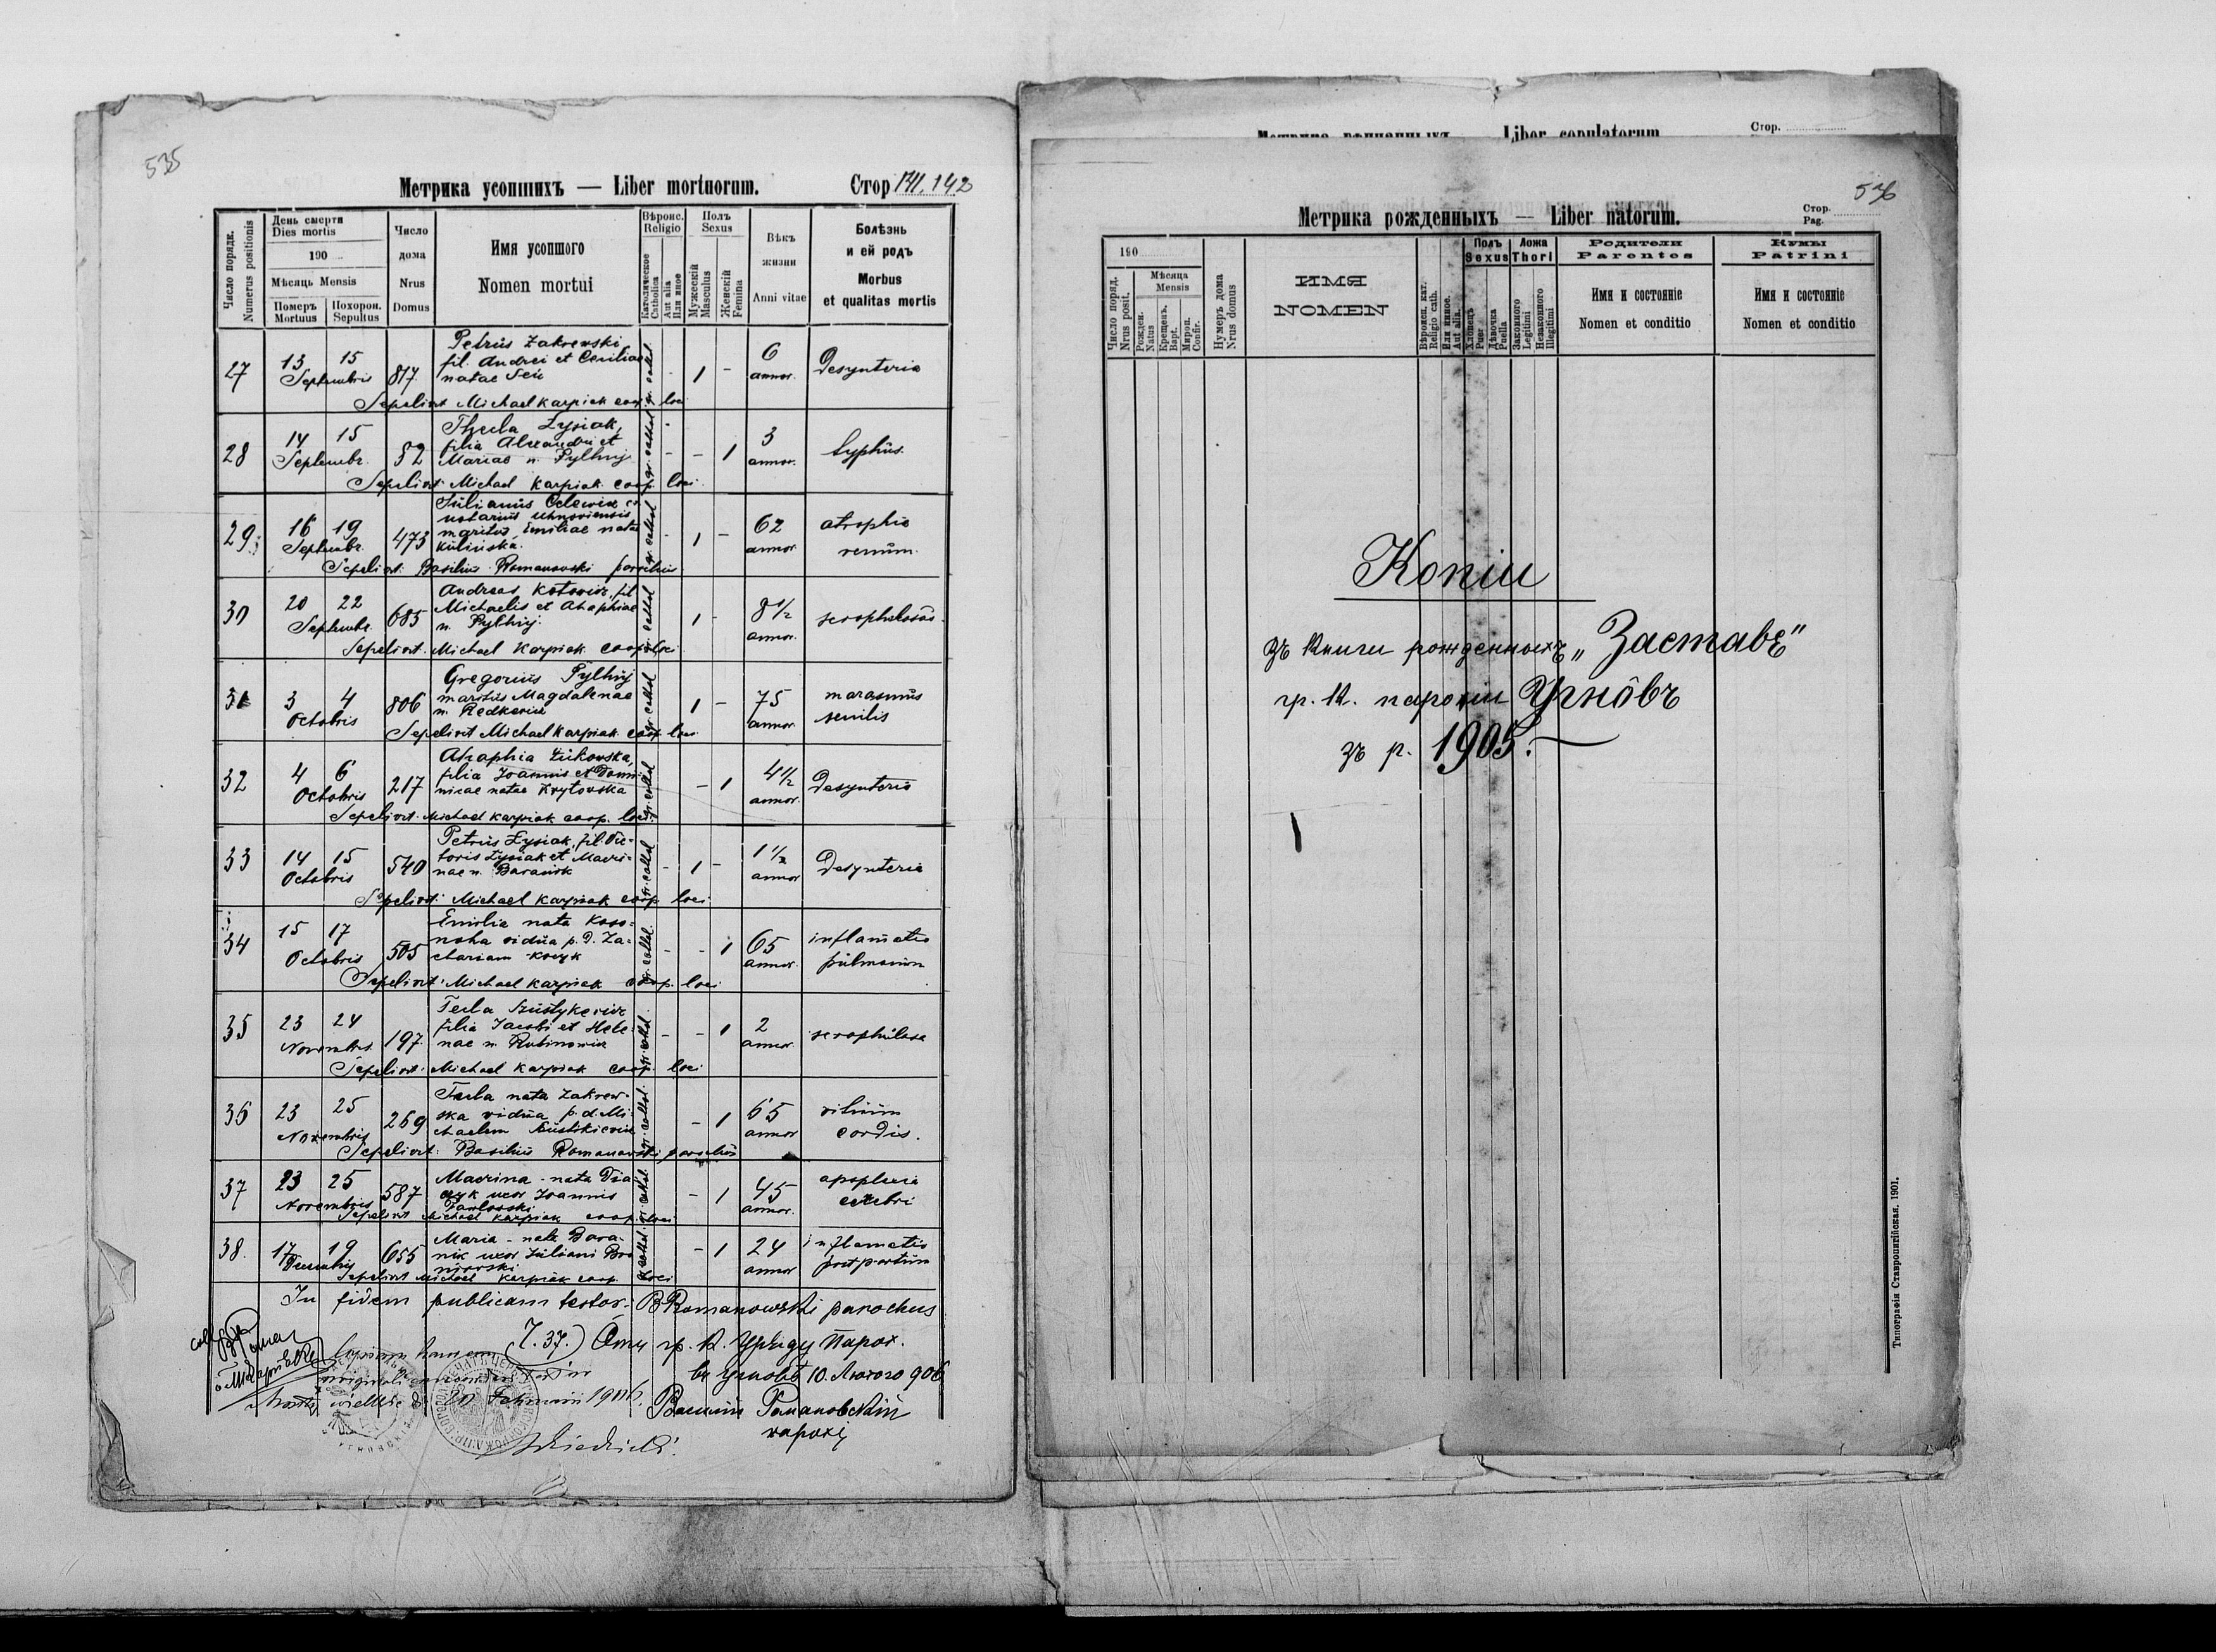 535
Метрика усопшихъ — Liber mortuorum.
Стор 141.142
Число порядк.
Numerus positionis
День смерти
Dies mortis
190
Мѣсяць Mensis
Померъ
Mortuus
Похорон.
Sepultus
Число
дома
Nrus
Domus
Имя усопшого
Nomen mortui
Вѣроис.
Religio
Католическое
Catholica
Aut alia
Или иное
Полъ
Sexus
Мужескій
Masculus
Женскій
Femina
Вѣкъ
жизни
Anni vitae
Болѣзнь
и ей родъ
Morbus
et qualitas mortis
27 13 15 Septembris 817
Petrus Zakrewski
fil. Andrei et Ceciliae
natae Seń
gr. cathol - 1 - 6 annor. Desynteria
Sepelivit Michael Karpiak coop. loci
28 14 15 Septembr. 52
Thecla Łysiak,
filia Alexandri et
Mariae n. Pylhuj
gr. cathol - - 1 3 annor. typhus.
Sepelivit Michael Karpiak coop. loci
29 16 19 Septembr. 473
Julianus Celewicz
notarius Uhnoviensis
maritus Emiliae nata
Kulińska.
gr. cathol - 1 - 62 annor. atrophia
renum.
Sepelivit: Basilius Romanowski parochus
30 20 22 Septembr. 685
Andreas Kotowicz, fil
Michaelis et Ahaphiae
n. Pylhuj
gr. cathol 1 - 8 1/2 annor.
Sepelivit. Michael Karpiak coop. loci
31 3 4 Octobris 806
Gregorius Pylhuj
maritus Magdalenae
n. Redkewicz
gr. cathol 1 - 75 annor. marasmus
senilis
Sepelivit Michael Karpiak coop. loci
32 4 6 Octobris 217
Ahaphia Żukowska,
filia Joannis et Domi-
nicae natae Krytowska
gr. cathol - 1 4 1/2 annor. Desynteria
Sepelivit. Michael Karpiak coop. loci
33 14 15 Octobris 540
Petrus Łysiak, fil. Vic-
toris Łysiak et Macri-
nae n. Baranik
gr. cathol - 1 - 1 1/2 annor Desynteria
Sepelivit: Michael Karpiak coop. loci
34 15 17 Octobris 505
Emilia nata Koso-
noha vidua p. d. Za-
chariam Kocyk
gr. cathol. - - 1 65 annor. inflamatio
pulmonum
Sepelivit: Michael Karpiak coop. loci
35 23 24 Novembris 197
Tecla Szustykewicz
filia Jacobi et Hele-
nae n. Rubinowicz
gr. cathol. - - 1 2 annor. scrophulosa
Sepelivit: Michael Karpiak coop. loci
36 23 25 Novembris 269
Tecla nata Zakrew-
ska vidua p. d. Mi-
chaelem Szustikiewicz
gr. cathol. - 1 65 annor vitium
cordis.
Sepelivit: Basilius Romanowski parochus
37 23 25 Novembris 587
Macrina - nata Dia-
czyk uxor Joannis
Pawlowski
gr. cathol - 1 45 annor. apoplexia
cerebri
Sepelivit Michael Karpiak coop. loci
38. 17 19 Decembris 655
Maria - nata Bara-
nik uxor Juliani
gr. cathol - 1 24 annor inflamatio
post partum
Sepelivit Michael Karpiak coop. loci
In fidem publicam testor. BRomanowski parochus
Ć. 37.) Отъ гр. к. Уряду Парох.
въ Угновѣ 10. Лютого 906
20 Februarii 1906.
Василій Романовскій
парохъ
Метрика вѣнчанныхъ Liber copulatorum
Стор.
536
Метрика рожденныхъ — Liber natorum.
Стор.
Pag.
190
Число поряд.
Nrus posit.
Мѣсяца
Mensis
Рожден.
Natus
Крещенъ.
Bapt.
Миров.
Confir.
Нумеръ дома
Nrus domus
ИМЯ
NOMEN
Вѣроисп. кат.
Religio cath.
Или иное.
Aut alia.
Полъ
Sexus
Хлопецъ
Puer
Дѣвочка
Puella
Ложа
Thori
Законного
Legitimi
Незаконного
Illegitimi
Родители
Parentes
Имя и состояніе
Nomen et conditio
Кумы
Patrini
Имя и состояніе
Nomen et conditio
Копіи
зъ Книги рожденныхъ „Заставѣ"
гр. к. парохіи Угнôвъ
зъ р. 1905.
Типографія Ставропигійская. 1901.